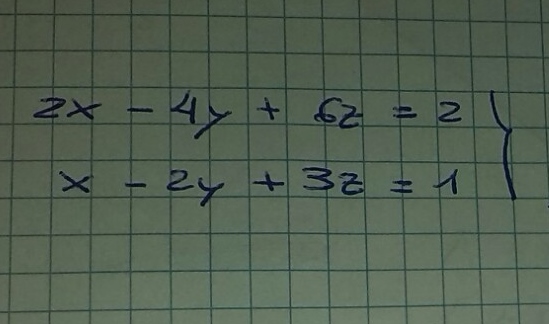 2x - 4y + 6z = 2
x - 2y + 3z = 1